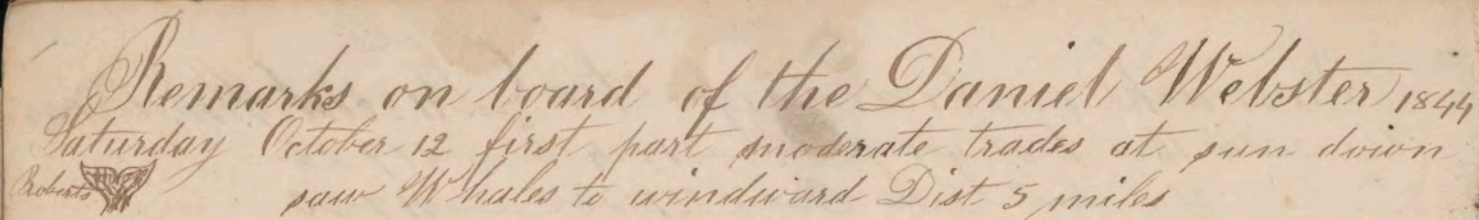 Remarks on board of the Daniel Webster 1844
Saturday October 12 first part moderate trades at sun down
Roberts saw Whales to windward Dist 5 miles